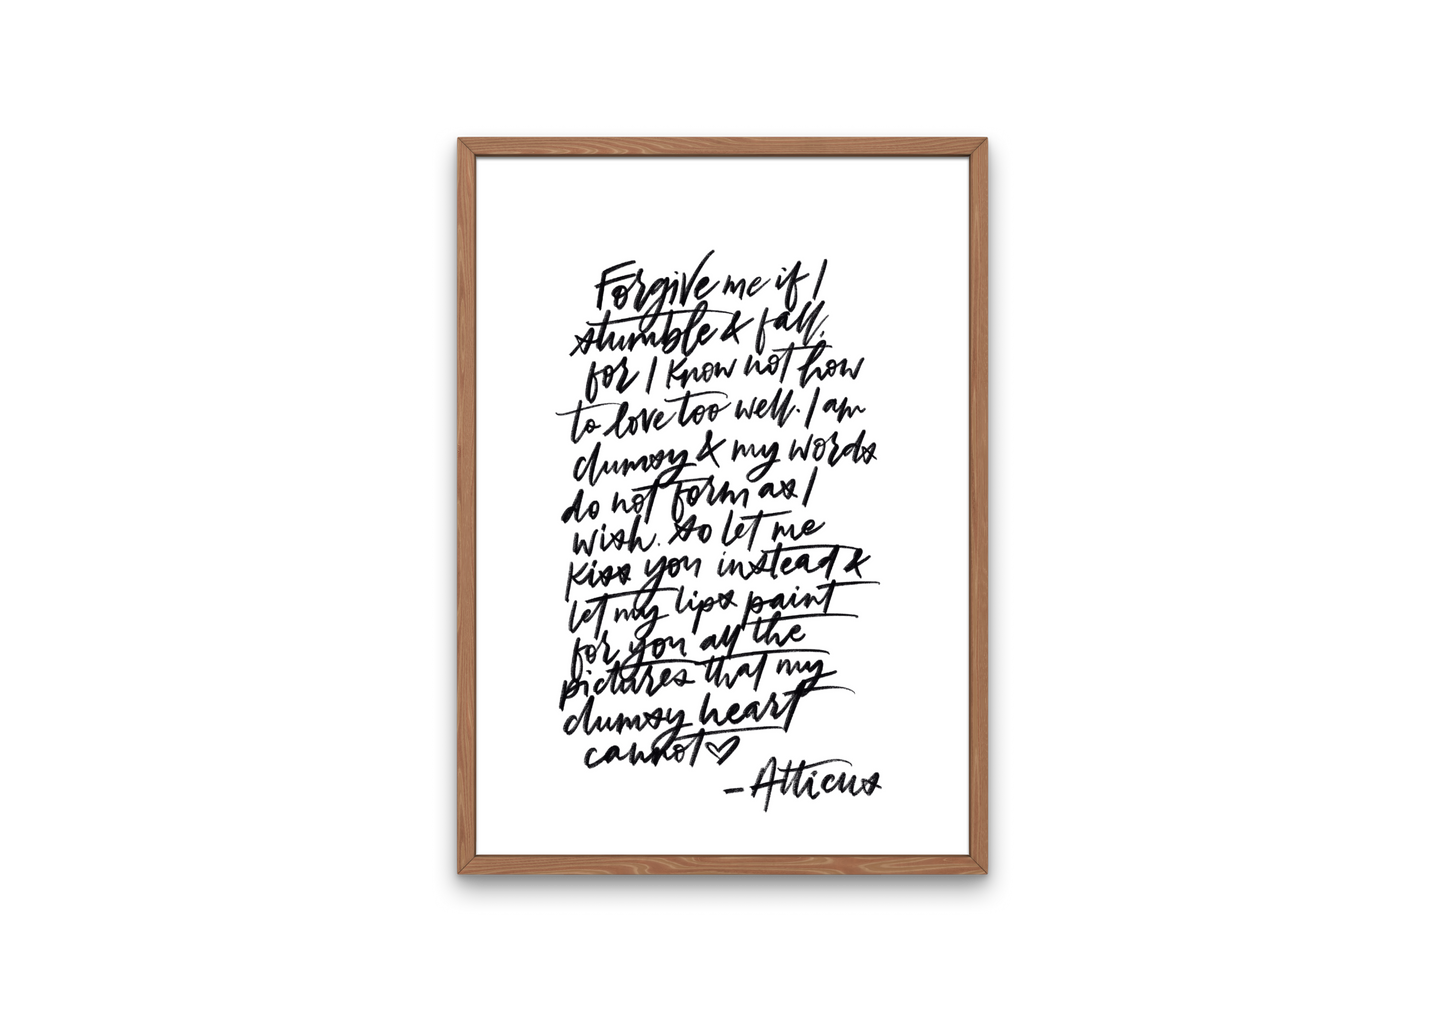 Forgive me if I
stumble & fall,
for I know not how
to love too well. I am
clumsy & my words
do not form as I
wish. So let me
kiss you instead &
let my lips paint
for you all the
pictures that my
clumsy heart
cannot♡
- Atticus